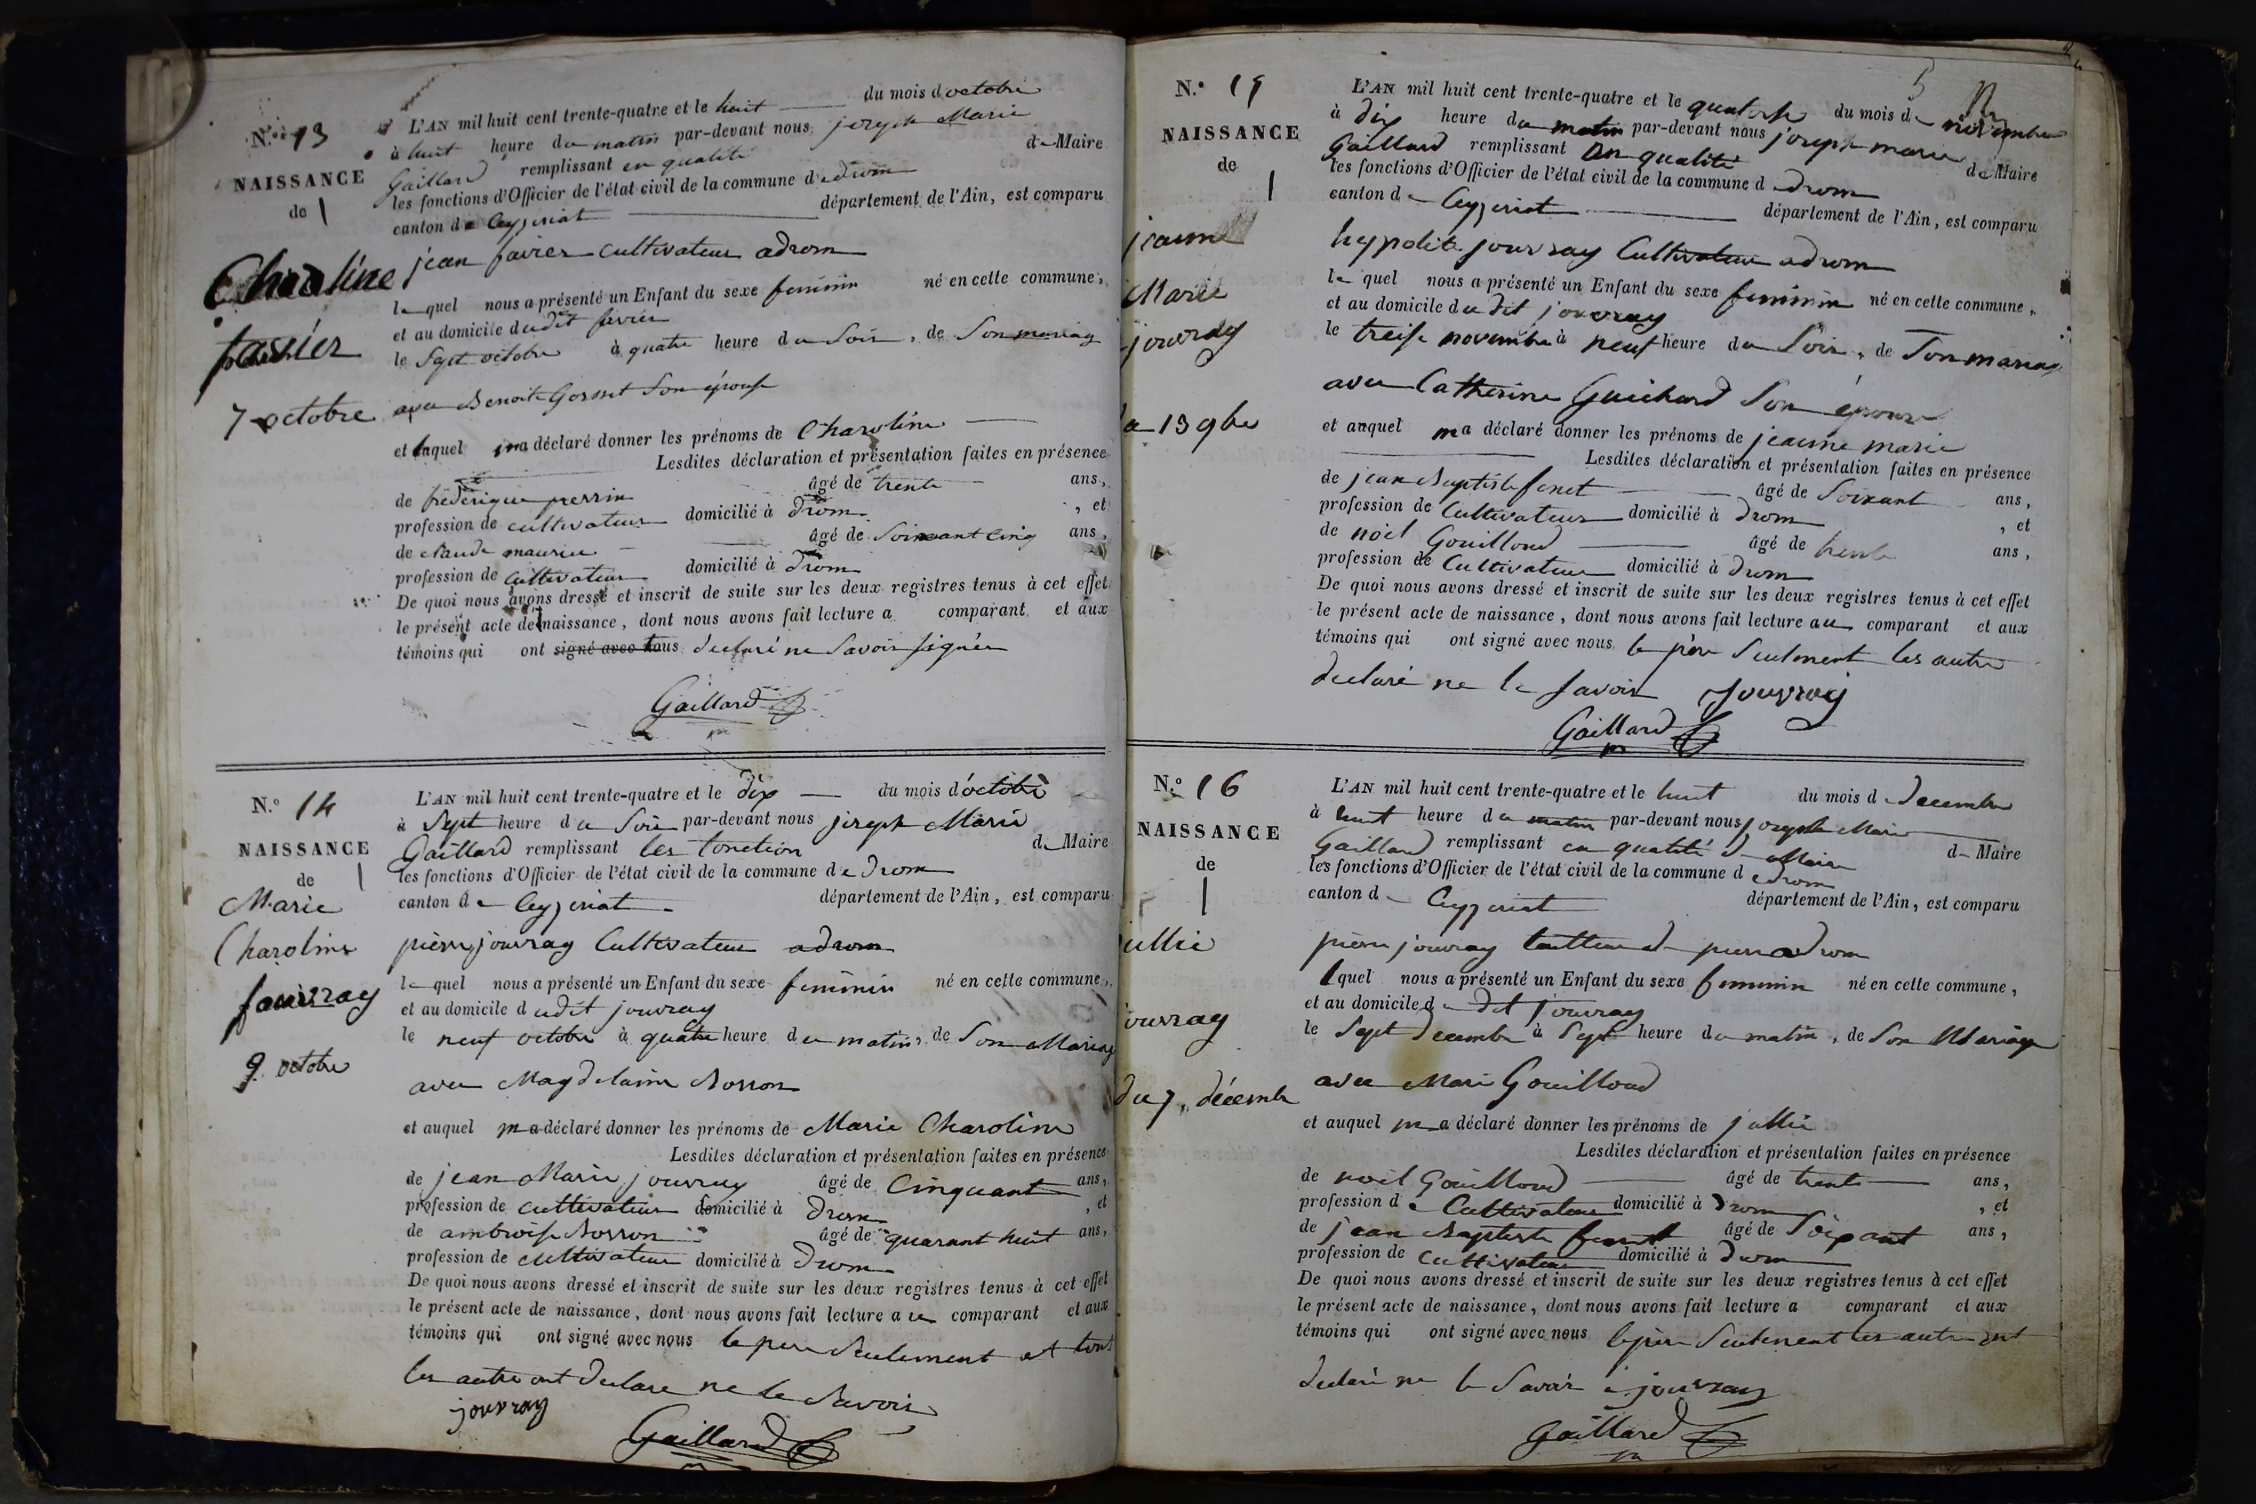 N.º 13
NAISSANCE
de
Charoline
favier
7 octobre
L'AN mil huit cent trente-quatre et le huit du mois d'octobre
à huit heure du matin par-devant nous joseph Marie
Gaillard remplissant en qualité de Maire
les fonctions d'Officier de l'état civil de la commune de drom
canton de Ceyzeriat département de l'Ain, est comparu
jean favier cultivateur a drom
le quel nous a présenté un Enfant du sexe feminin né en cette commune,
et au domicile du dit favier
le Sept octobre à quatre heure du Soir, de Son mariage
avec Benoite Gosset Son épouse
et auquel il m'a déclaré donner les prénoms de Charoline
Lesdites déclaration et présentation faites en présence
de fréderique perrin âgé de trente ans,
profession de cultivateur domicilié à drom, et
de claude maurice âgé de Soixant cinq ans,
profession de cultivateur domicilié à drom
De quoi nous avons dressé et inscrit de suite sur les deux registres tenus à cet effet
le présent acte de naissance, dont nous avons fait lecture a comparant et aux
témoins qui ont signé avec nous declaré ne Savoir signér
Gaillard
N.º 14
NAISSANCE
de
Marie
Charoline
jouvray
9 octobre
L'AN mil huit cent trente-quatre et le dix du mois d'octobre
à Sept heure du Soir par-devant nous joseph Marie
Gaillard remplissant les fonction de Maire
les fonctions d'Officier de l'état civil de la commune de drom
canton de Ceyzeriat département de l'Ain, est comparu
pierre jouvray Cultivateur a drom
le quel nous a présenté un Enfant du sexe feminin né en cette commune,
et au domicile du dit jouvray
le neuf octobre à quatre heure du matin, de Son Mariage
avec Magdelaine Borron
et auquel m'a déclaré donner les prénoms de Marie Charoline
Lesdites déclaration et présentation faites en présence
de jean Marie jouvray âgé de Cinquant ans,
profession de cultivateur domicilié à drom, et
de ambroise Borron âgé de quarant huit ans,
profession de cultivateur domicilié à drom
De quoi nous avons dressé et inscrit de suite sur les deux registres tenus à cet effet
le présent acte de naissance, dont nous avons fait lecture au comparant et aux
témoins qui ont signé avec nous le pere Seulement et tout
les autre ont declare ne le Savoir
jouvray
Gaillard
5
N.º 15
NAISSANCE
de
jeaune
Marie
jouvray
le 13 9bre
L'AN mil huit cent trente-quatre et le quatorse du mois de novembre
à dix heure du matin par-devant nous joseph marie
Gaillard remplissant en qualité de Maire
les fonctions d'Officier de l'état civil de la commune de drom
canton de Ceyzeriat département de l'Ain, est comparu
hypolite jouvray Cultivateur a drom
le quel nous a présenté un Enfant du sexe feminin né en cette commune,
et au domicile du dit jouvray
le treise novembre à neuf heure du Soir, de Son mariage
avec Catherine Guichard Son épouse
et auquel m'a déclaré donner les prénoms de jeaune marie
Lesdites déclaration et présentation faites en présence
de jean Baptiste fenet âgé de Soixant ans,
profession de Cultivateur domicilié à drom, et
de noël Gouilloud âgé de trente ans,
profession de Cultivateur domicilié à drom
De quoi nous avons dressé et inscrit de suite sur les deux registres tenus à cet effet
le présent acte de naissance, dont nous avons fait lecture au comparant et aux
témoins qui ont signé avec nous le père Seulment les autre
declaré ne le Savoir jouvray
Gaillard
N.º 16
NAISSANCE
de
jullie
jouvray
du 7 décembre
L'AN mil huit cent trente-quatre et le huit du mois de decembre
à huit heure du matin par-devant nous joseph Marie
Gaillard remplissant en qualité de Maire de Maire
les fonctions d'Officier de l'état civil de la commune de drom
canton de Ceyzeriat département de l'Ain, est comparu
pierre jouvray tailleur de pierre a drom
lequel nous a présenté un Enfant du sexe feminin né en cette commune,
et au domicile du dit jouvray
le Sept decembre à Sept heure du matin, de Son Mariage
avec Marie Gouilloud
et auquel m'a déclaré donner les prénoms de jullie
Lesdites déclaration et présentation faites en présence
de noël Gouilloud âgé de trente ans,
profession de Cultivateur domicilié à drom, et
de jean Baptiste fenet âgé de Soixant ans,
profession de Cultivateur domicilié à drom
De quoi nous avons dressé et inscrit de suite sur les deux registres tenus à cet effet
le présent acte de naissance, dont nous avons fait lecture a comparant et aux
témoins qui ont signé avec nous le père Seulement les autre ont
declaré ne le Savoir jouvray
Gaillard